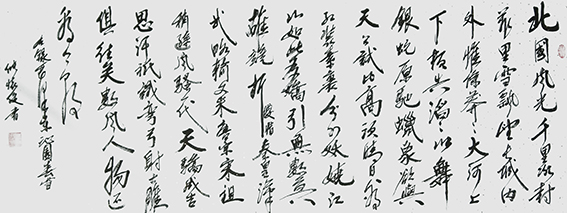 北國风光千里冰封
万里雪飘望长城内
外惟馀莽莽大河上
下顿失滔滔山舞
银蛇原驰蠟象欲與
天公試比高须晴日看
红装素裹分外妖娆江
山如此多嬌引無數英
雄競折腰惜秦皇漢
武略输文采唐宗宋祖
稍遜風骚一代天骄成吉
思汗祇識弯弓射大雕
俱往矣數風流人物还
看今朝
毛泽东沁園春雪
書